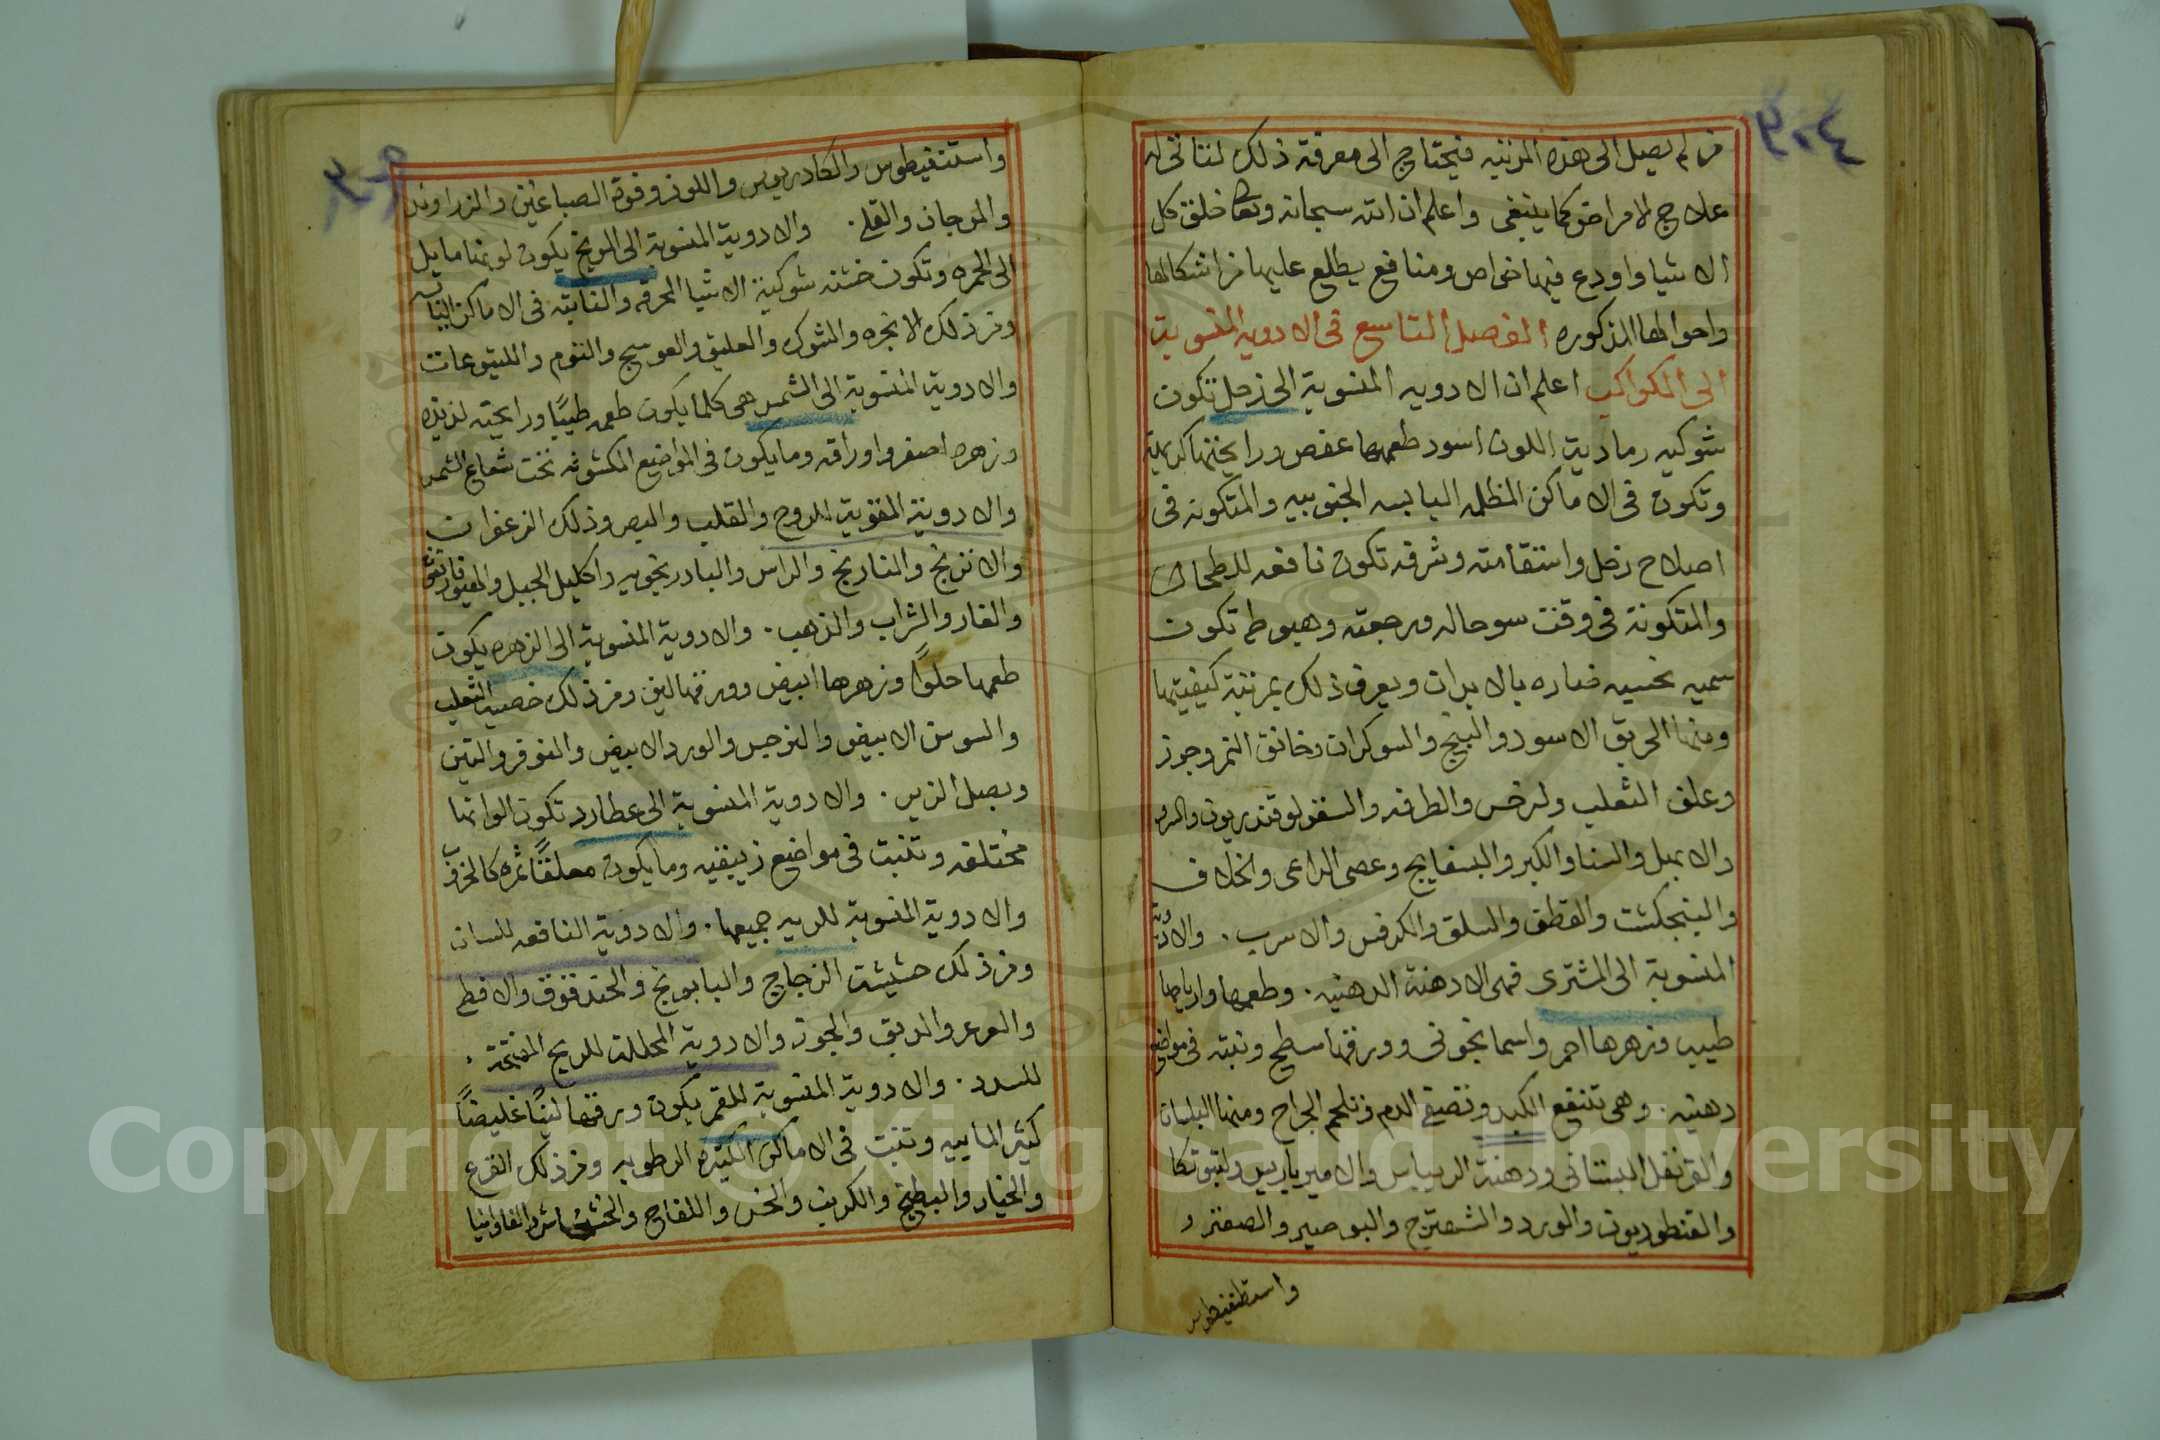 من لم يصل الى هذه المرتبه فيحتاج الى معرفة ذلك لتتاتى له
علاج الامراض كما ينبغى واعلم ان الله سبحانه وتعا خلق كل
الاشيا واودع فيها خواص ومنافع يطلع عليها من اشكالها
واحوالها المذكوره الفصل التاسع فى الادويه المنسوبة
الى الكواكب اعلم ان الادويه المنسوبة الى زحل تكون
شوكيه رمادية اللون اسود طعمها عفص ورايحتها كريهة
وتكون فى الاماكن المظلمه اليابسه الجنوبيه والمتكونه فى
اصلاح زحل واستقامته وشرفه تكون نافعه للطحال
والمتكونة فى وقت سوحاله ورجعته وهبوطه تكون
سميه نحسيه ضاره بالابدان ويعرف ذلك بمرتبة كيفيتها
ومنها الخربق الاسود والبنج والسوكران وخانق النمر وجوز
وعلق الثعلب ولرخس والطرفه والسقولوقندريون والدر
والابهل والسنا والكبر والبسفايج وعصى الراعى والخلاف
والبنجكشت والقطف والسلق والكرفس والاسرب . والادوية
المنسوبة الى المشترى فهى الادهنة الدهنيه . وطعمها وارياحها
طيب وزهرها احمر واسمانجونى وورقها سطح ونبته فى مواضع
دهنيه . وهى تنفع الكبد وتصفى الدم وتلحم الجراح ومنها البلسان
والقرنفل البستانى ودهنة الريباس والاميرباريس ولتبوتكا
والقنطوريون والورد والشهترج والبوصير والصعتر و
واسطفيطوس
واستنفيطوس والكادريوس واللوز وفوة الصباغين والزراوند
والمرجان والقلى . والادوية المنسوبة الى المريخ يكون لونها مايل
الى الحمره وتكون خشنه شوكية الاشيا المحرقه والنابته فى الاماكن اليابسه
ومن ذلك الانجره والشوك والعليق والعوسج والثوم والليتوعات
والادوية المنسوبة الى الشمس هى كلما يكون طعمه طيبًا ورايحته لذيذه
وزهره اصفر واوراقه ومايكون فى المواضع المكشوفه تحت شعاع الشمس
والادوية المقوية للروح والقلب والبصر وذلك الزعفران
والاترنج والنارنج والراس والبادرنجويه واكليل الجبل والهيوفاريقون
والغار والشراب والذهب . والادوية المنسوبة الى الزهره يكون
طعمها حلوًا وزهرها ابيض وورقها لين ومن ذلك خصية الثعلب
والسوسن الابيض والنرجس والورد الابيض والنوفر والتين
وبصل الزير . والادوية المنسوبة الى عطارد تكون الوانها
مختلفه وتنبت فى مواضع زيبقيه ومايكون معلقًا ثمره كالخروب
والادوية المنسوبة للريه جميعها . والادوية النافعه للسان
ومن ذلك حشيشة الزجاج والبابونج والحندقوق والافطى
والعرعر والدبق والجوز والادوية المحللة للريح المفتحة .
للسدد . والادوية المنسوبة للقمر يكون ورقها لينًا غليضًا
كثير الماييه وتنبت فى الاماكن الكثيره الرطوبه ومن ذلك القرع
والخيار والبطيخ والكرنب والخس واللفاح والخشخاش والفاوانيا
Copyright © King Saud University